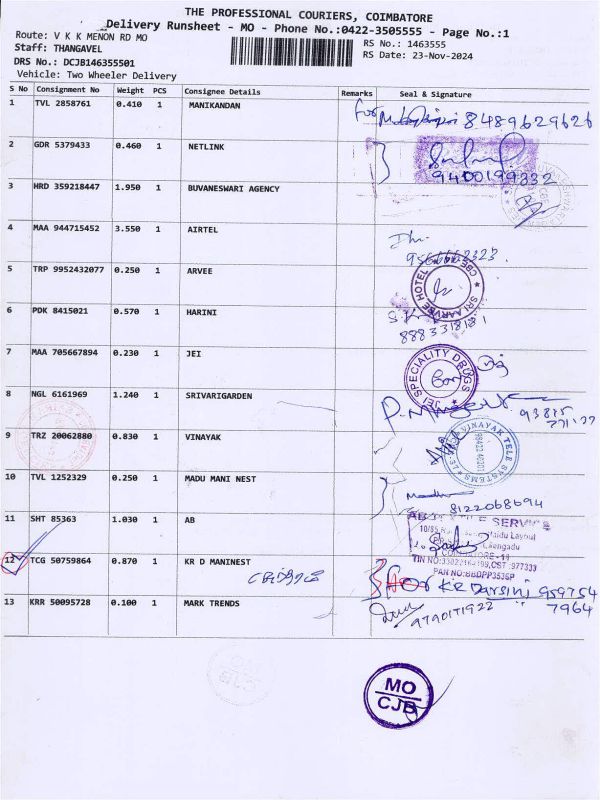 THE PROFESSIONAL COURIERS, COIMBATORE
Delivery Runsheet - MO - Phone No.:0422-3505555 - Page No.:1
Route: V K K MENON RD MO
RS No.: 1463555
Staff: THANGAVEL
RS Date: 23-Nov-2024
DRS No.: DCJB146355501
Vehicle: Two Wheeler Delivery
S No Consignment No Weight PCS Consignee Details Remarks Seal & Signature
1 TVL 2858761 0.410 1 MANIKANDAN
for 8489629626
2 GDR 5379433 0.460 1 NETLINK
9400199332
3 HRD 359218447 1.950 1 BUVANESWARI AGENCY
4 MAA 944715452 3.550 1 AIRTEL
5 TRP 9952432077 0.250 1 ARVEE
SRI AARVEE HOTEL CBE
6 PDK 8415021 0.570 1 HARINI
7 MAA 705667894 0.230 1 JEI
JEI SPECIALITY DRUGS
8 NGL 6161969 1.240 1 SRIVARIGARDEN
93815
9 TRZ 20062880 0.830 1 VINAYAK
VINAYAK TELE SYSTEMS
10 TVL 1252329 0.250 1 MADU MANI NEST
8122068694
11 SHT 85363 1.030 1 AB
12 TCG 50759864 0.870 1 KR D MANINEST
PAN NO:BBDPP3535P
for KR Darsini 959754
7964
13 KRR 50095728 0.100 1 MARK TRENDS
9790171922
MO
CJB